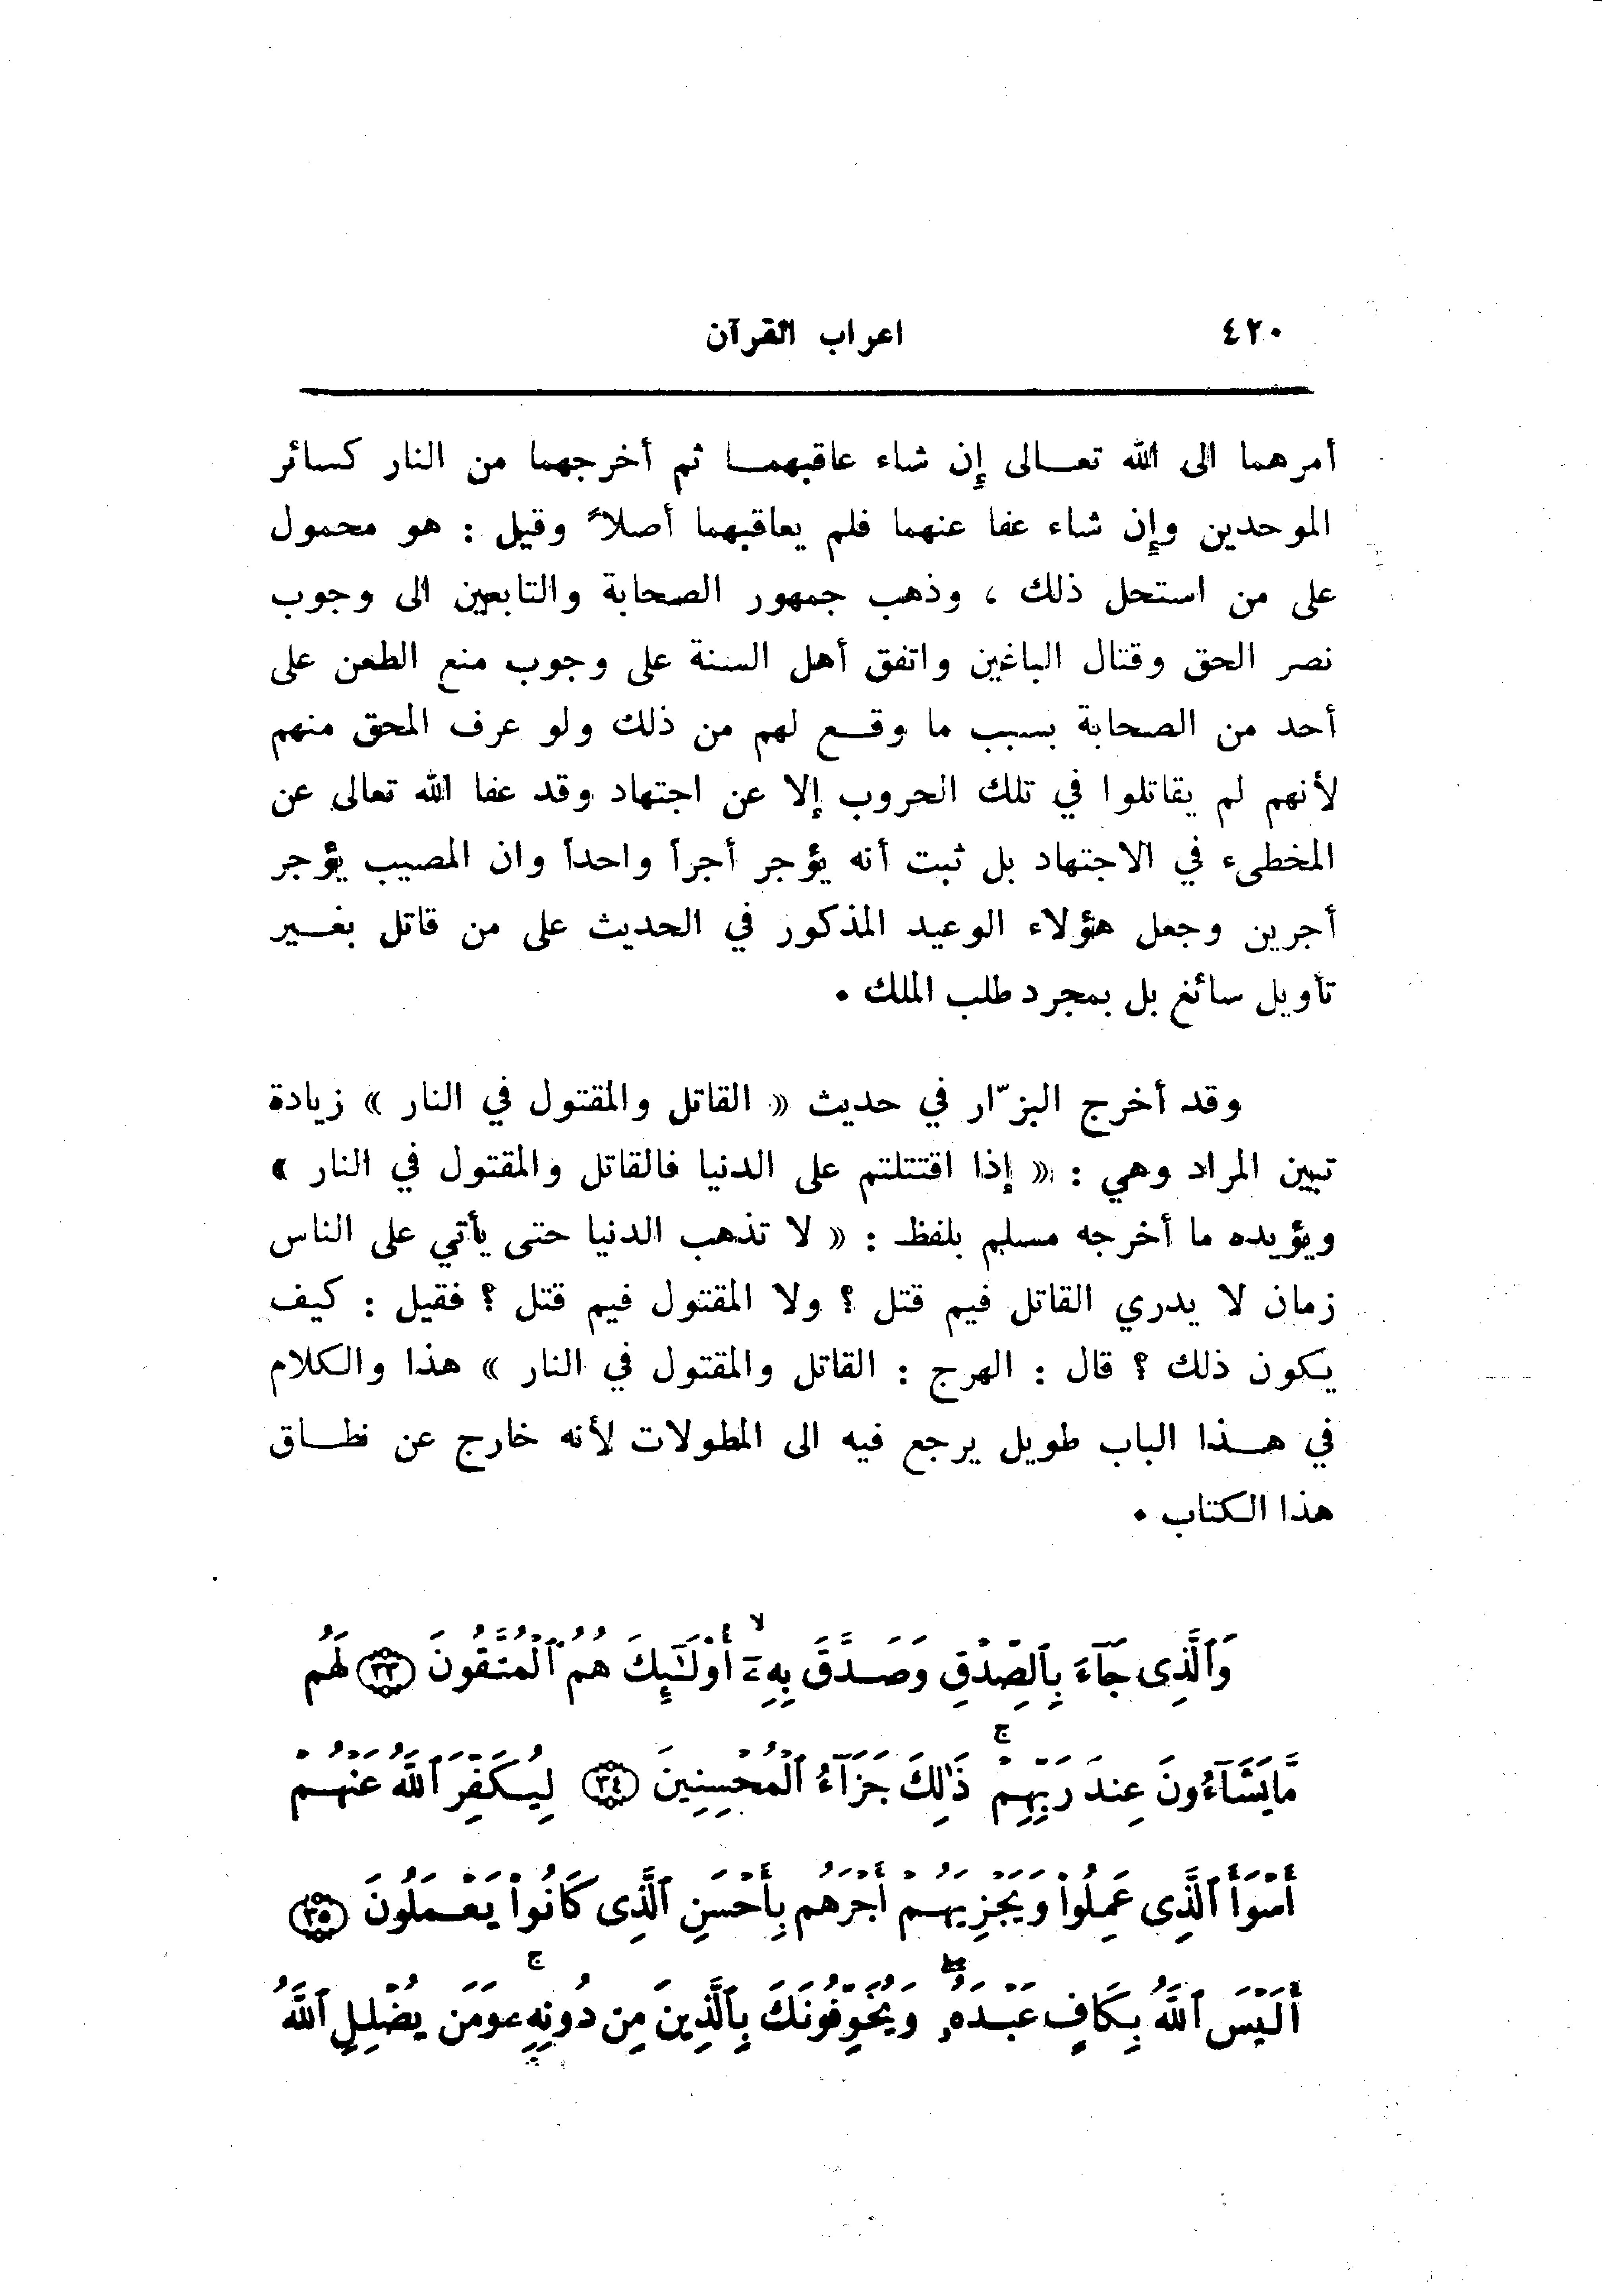 ٤٢٠ اعراب القرآن
أمرهما الى الله تعــالى إن شاء عاقبهمــا ثم أخرجهما من النار كسائر
الموحدين وإن شاء عفا عنهما فلم يعاقبهما أصلاً وقيل : هو محمول
على من استحل ذلك ، وذهب جمهور الصحابة والتابعين الى وجوب
نصر الحق وقتال الباغين واتفق أهل السنة على وجوب منع الطعن على
أحد من الصحابة بسبب ما وقــع لهم من ذلك ولو عرف المحق منهم
لأنهم لم يقاتلوا في تلك الحروب إلا عن اجتهاد وقد عفا الله تعالى عن
المخطىء في الاجتهاد بل ثبت أنه يؤجر أجراً واحداً وان المصيب يؤجر
أجرين وجعل هؤلاء الوعيد المذكور في الحديث على من قاتل بغــير
تأويل سائغ بل بمجرد طلب الملك .
وقد أخرج البزّار في حديث « القاتل والمقتول في النار » زيادة
تبين المراد وهي : « إذا اقتتلتم على الدنيا فالقاتل والمقتول في النار »
ويؤيده ما أخرجه مسلم بلفظ : « لا تذهب الدنيا حتى يأتي على الناس
زمان لا يدري القاتل فيم قتل ؟ ولا المقتول فيم قتل ؟ فقيل : كيف
يكون ذلك ؟ قال : الهرج : القاتل والمقتول في النار » هذا والكلام
في هــذا الباب طويل يرجع فيه الى المطولات لأنه خارج عن نطــاق
هذا الكتاب .
وَٱلَّذِى جَآءَ بِٱلصِّدْقِ وَصَدَّقَ بِهِۦٓ ۙ أُوْلَـٰٓئِكَ هُمُ ٱلْمُتَّقُونَ ﴿٣٣﴾ لَهُم
مَّا يَشَآءُونَ عِندَ رَبِّهِمْ ۚ ذَٰلِكَ جَزَآءُ ٱلْمُحْسِنِينَ ﴿٣٤﴾ لِيُكَفِّرَ ٱللَّهُ عَنْهُمْ
أَسْوَأَ ٱلَّذِى عَمِلُواْ وَيَجْزِيَهُمْ أَجْرَهُم بِأَحْسَنِ ٱلَّذِى كَانُواْ يَعْمَلُونَ ﴿٣٥﴾
أَلَيْسَ ٱللَّهُ بِكَافٍ عَبْدَهُۥ ۖ وَيُخَوِّفُونَكَ بِٱلَّذِينَ مِن دُونِهِۦ ۚ وَمَن يُضْلِلِ ٱللَّهُ